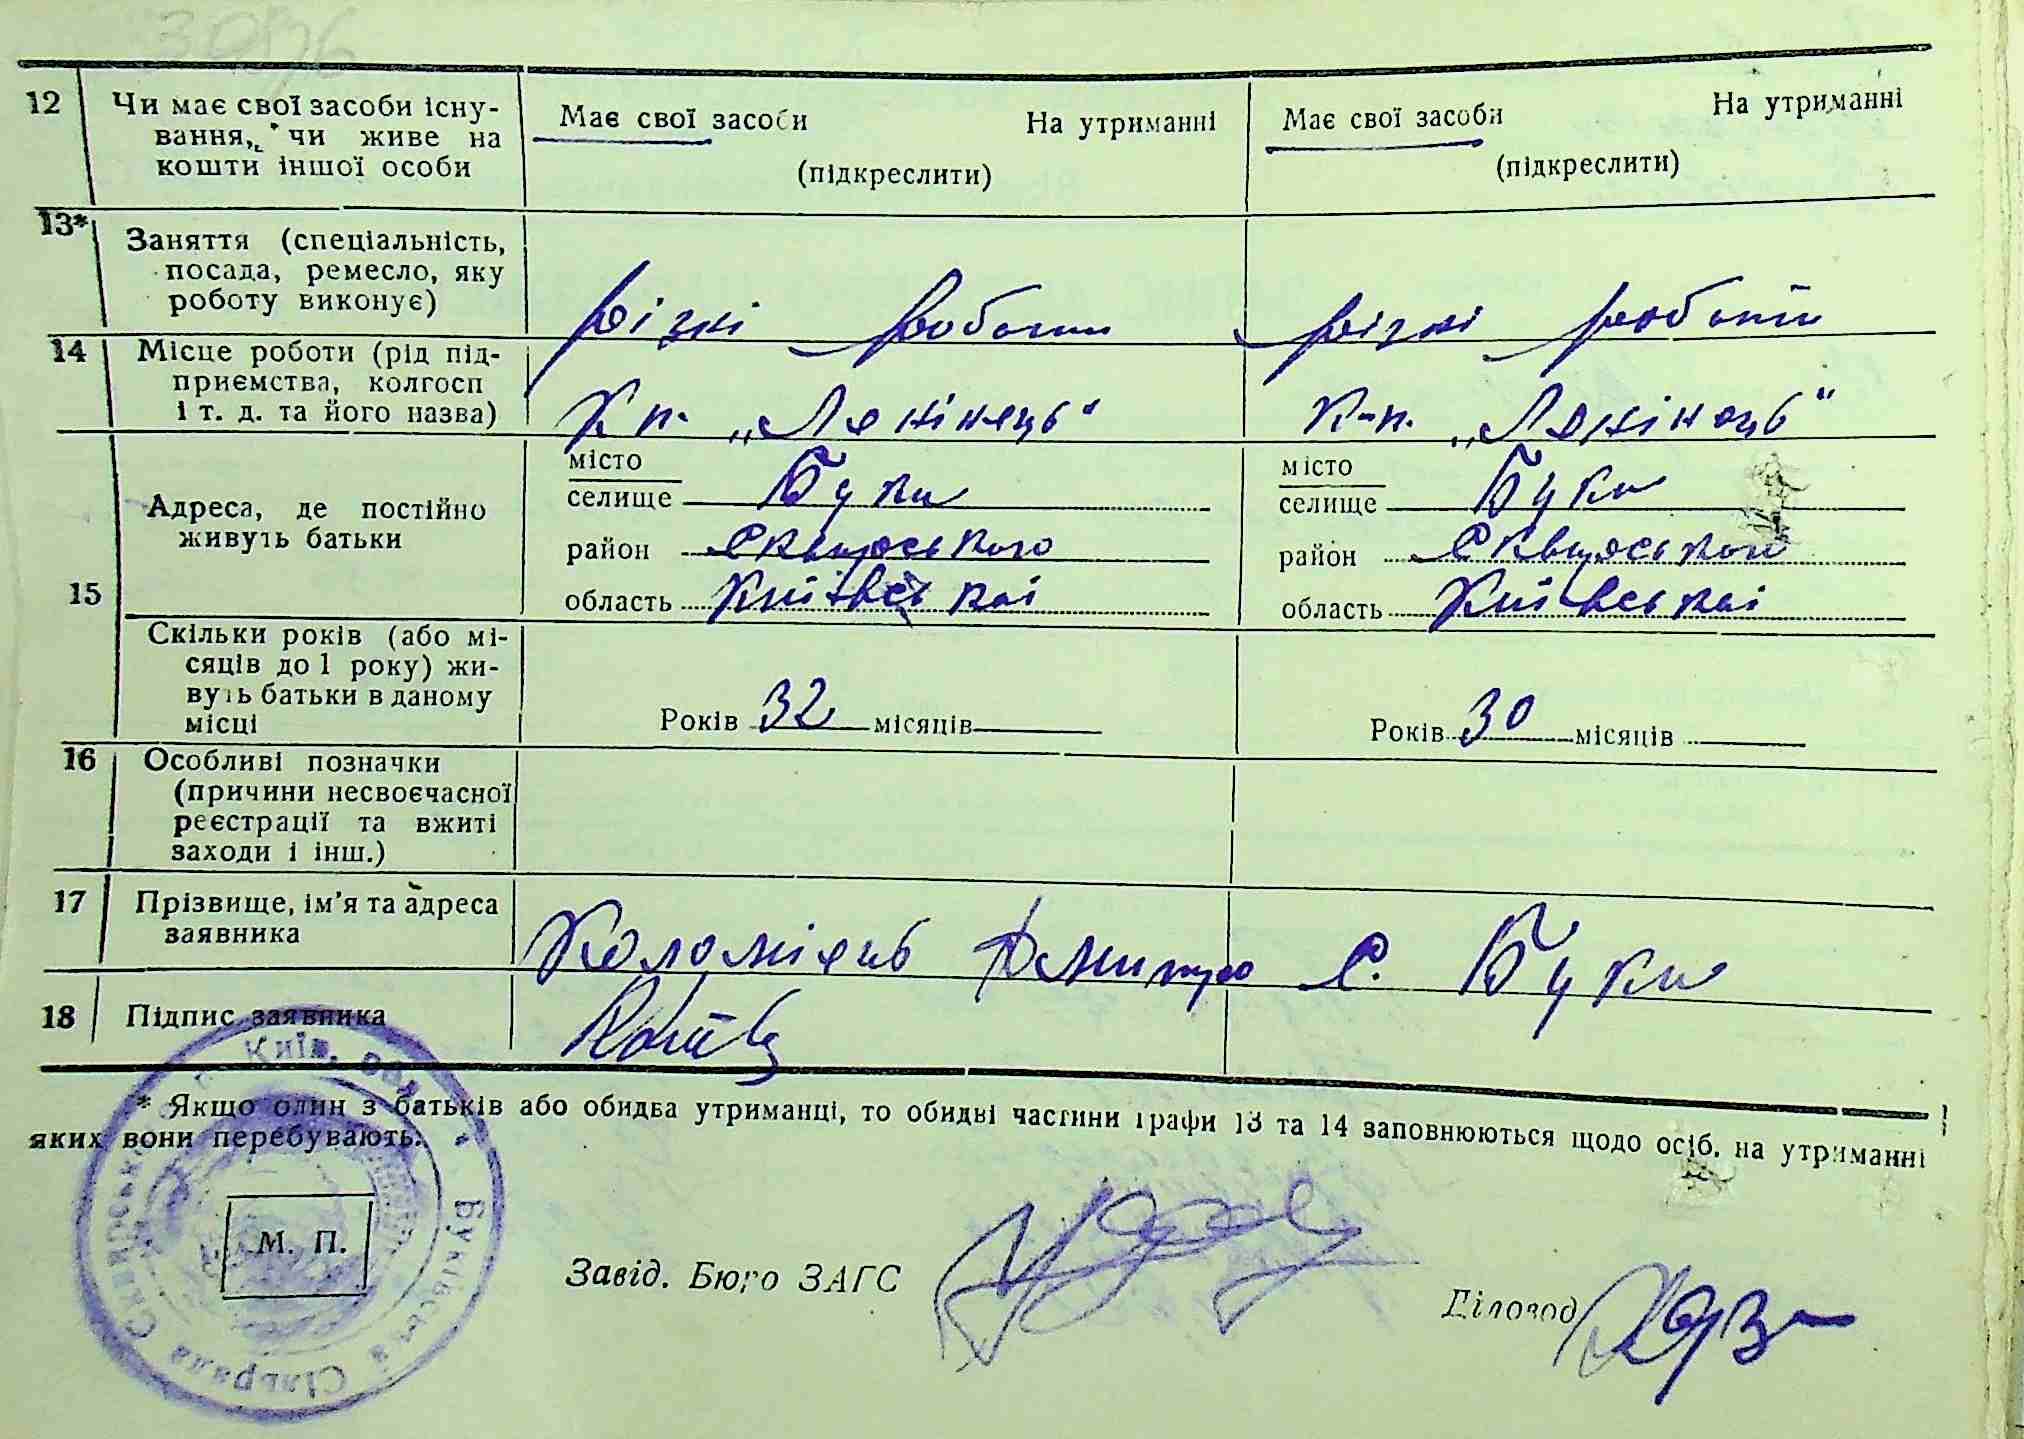 3076
12 Чи має свої засоби існу-
вання, чи живе на
кошти іншої особи
Має свої засоби На утриманні
(підкреслити)
Має свої засоби На утриманні
(підкреслити)
13* Заняття (спеціальність,
посада, ремесло, яку
роботу виконує)
різні роботи
різні роботи
14 Місце роботи (рід під-
приємства, колгосп
і т. д. та його назва)
К п. „Ленінець"
К-п. „Ленінець"
15
Адреса, де постійно
живуть батьки
місто
селище Буки
район Сквирського
область Київської
місто
селище Буки
район Сквирського
область Київської
Скільки років (або мі-
сяців до 1 року) жи-
вуть батьки в даному
місці
Років 32 місяців
Років 30 місяців
16 Особливі позначки
(причини несвоєчасної
реєстрації та вжиті
заходи і інш.)
17 Прізвище, ім'я та адреса
заявника
Коломієць Дмитро с. Буки
18 Підпис заявника
* Якщо один з батьків або обидва утриманці, то обидві частини графи 13 та 14 заповнюються щодо осіб, на утриманні
яких вони перебувають.
М. П.
Київ. обл.
Буківська Сільрада Сквирськ
Завід. Бюро ЗАГС
Діловод